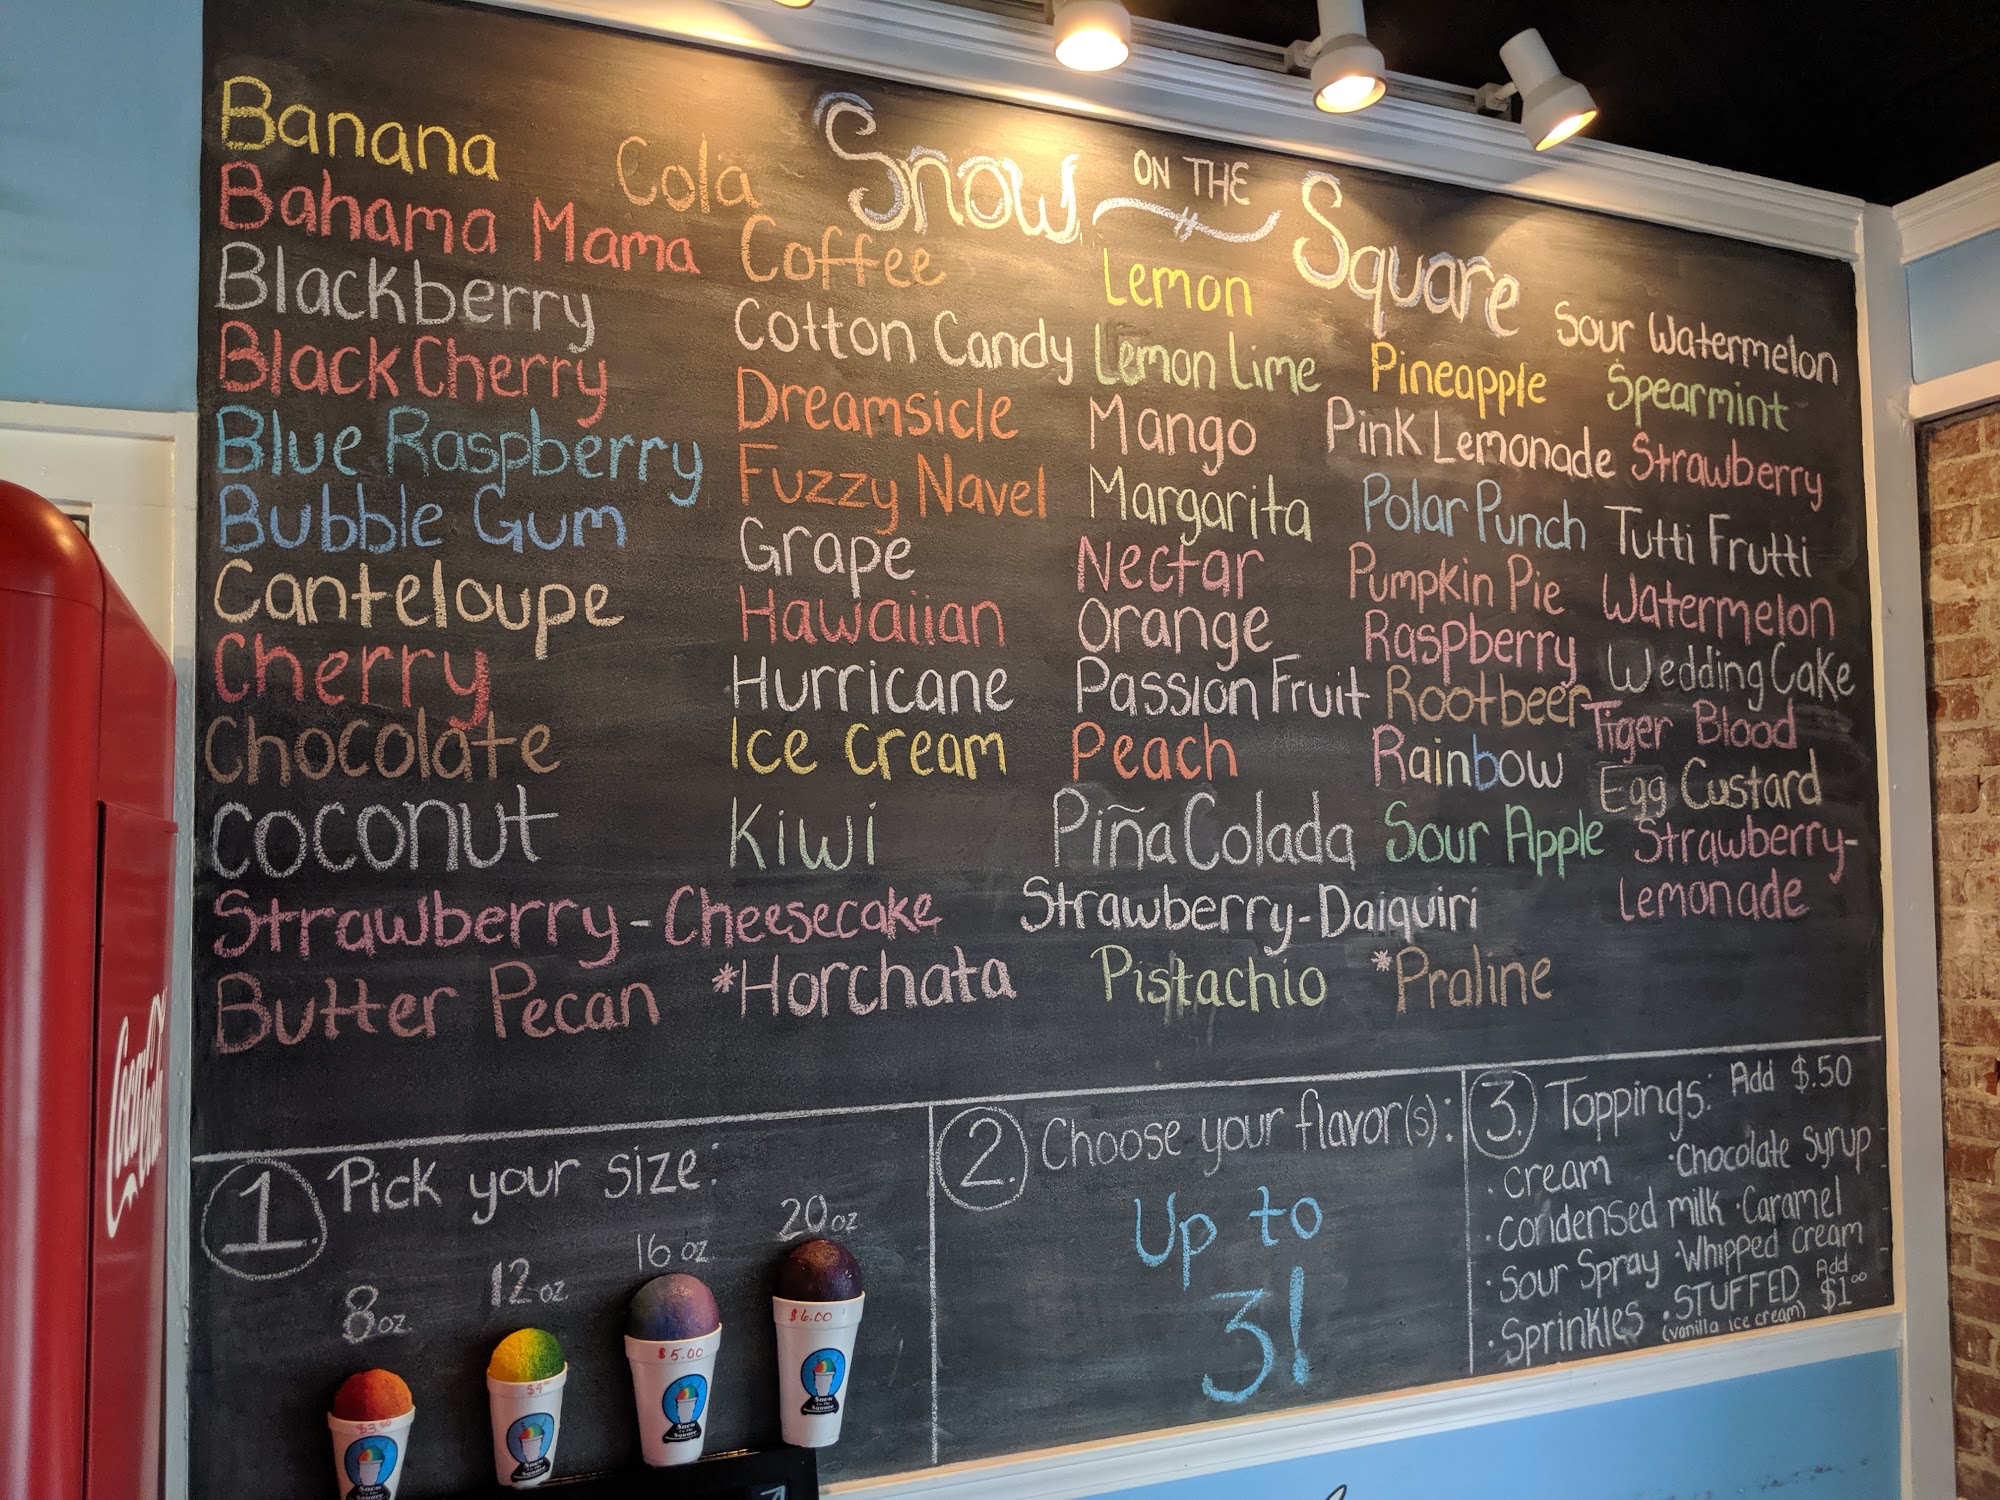 Snow ON THE Square
Banana
Bahama Mama
Blackberry
Black Cherry
Blue Raspberry
Bubble Gum
Canteloupe
Cherry
Chocolate
Coconut
Strawberry-Cheesecake
Butter Pecan
Cola
Coffee
Cotton Candy
Dreamsicle
Fuzzy Navel
Grape
Hawaiian
Hurricane
Ice Cream
Kiwi
*Horchata
Lemon
Lemon Lime
Mango
Margarita
Nectar
Orange
Passion Fruit
Peach
Piña Colada
Strawberry-Daiquiri
Pistachio
Pineapple
Pink Lemonade
Polar Punch
Pumpkin Pie
Raspberry
Rootbeer
Rainbow
Sour Apple
*Praline
Sour Watermelon
Spearmint
Strawberry
Tutti Frutti
Watermelon
Wedding Cake
Tiger Blood
Egg Custard
Strawberry-
Lemonade
1. Pick your size:
8 oz.
12 oz.
16 oz.
20 oz
$3.50
$4.00
$5.00
$6.00
Snow
On The
Square
Snow
On The
Square
Snow
On The
Square
Snow
On The
Square
2. Choose your flavor(s):
Up to
3!
3. Toppings: Add $.50
· Cream · Chocolate Syrup
· Condensed milk · Caramel
· Sour Spray · Whipped Cream
· Sprinkles · STUFFED Add $1.00
(vanilla ice cream)
Coca-Cola